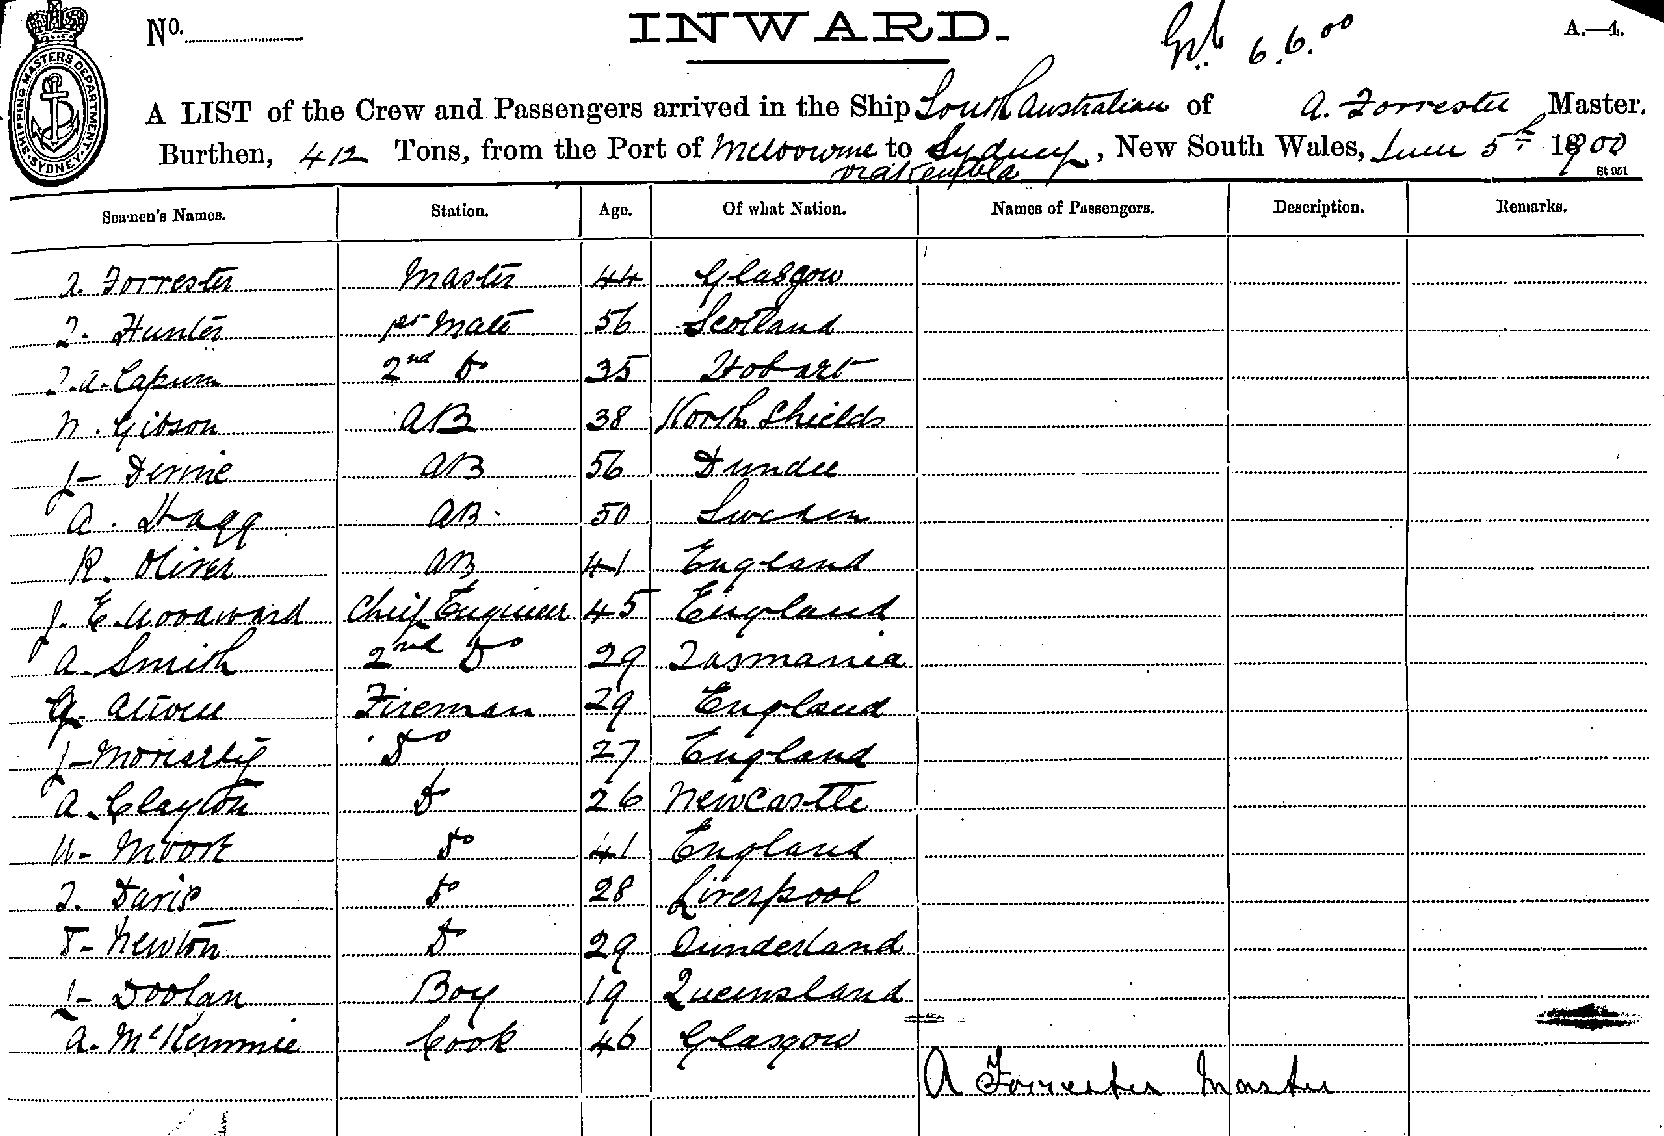 No. INWARD. 6.6.00 A.—4.
SHIPPING MASTERS DEPARTMENT SYDNEY
A LIST of the Crew and Passengers arrived in the Ship South Australian of A. Forrester Master.
Burthen, 412 Tons, from the Port of Melbourne to Sydney, New South Wales, June 5th 1900
via Kembla
Seamen's Names. Station. Age. Of what Nation. Names of Passengers. Description. Remarks.
A. Forrester Master 44 Glasgow
Hunter 1st Mate 56 Scotland
2nd Do 35 Hobart
N. Gibson AB 38 North Shields
AB 56 Dundee
A. Hagg AB. 50 Sweden
R. Oliver AB 41 England
J. E. Woodward Chief Engineer 45 England
A. Smith 2nd Do 29 Tasmania
Fireman 29 England
J- Moriarty Do 27 England
A. Clayton Do 26 Newcastle
W- Moore Do 41 England
Davis Do 28 Liverpool
Newton Do 29 Sunderland
J- Doolan Boy 19 Queensland
A. McKemmie Cook 46 Glasgow
A Forrester Master